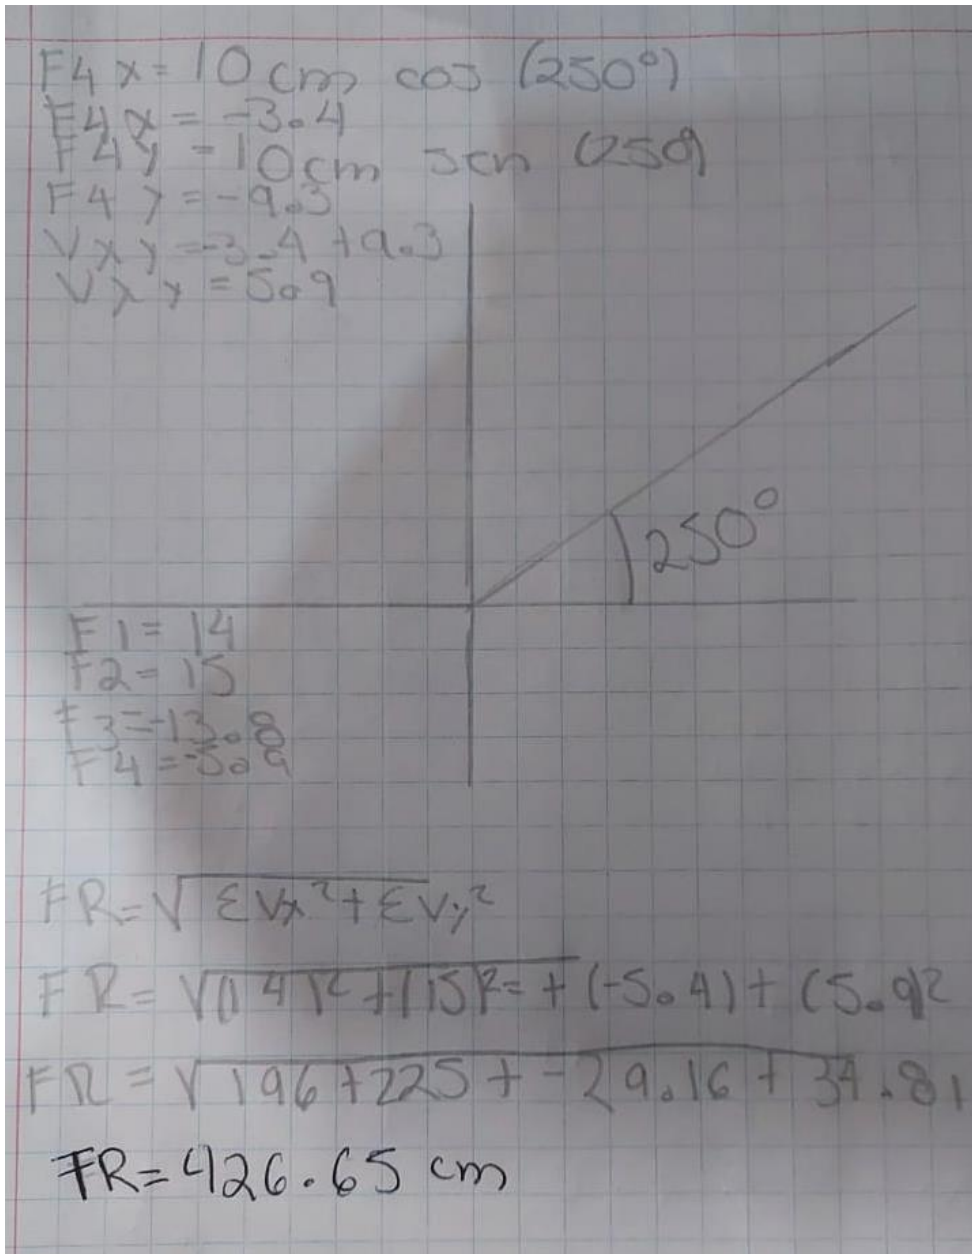 F4x=10cm cos (250°)
F4x=-3.4
F4y=10cm sen (250)
F4y=-9.3
Vxy=-3.4+9.3
Vxy=5.9
250°
F1=14
F2=15
F3=-13.8
F4=-5.9
FR=√ΣVx²+ΣVy²
FR=√(14)²+(15)²=+(-5.4)+(5.9)2
FR=√196+225+-29.16+34.81
FR=426.65 cm